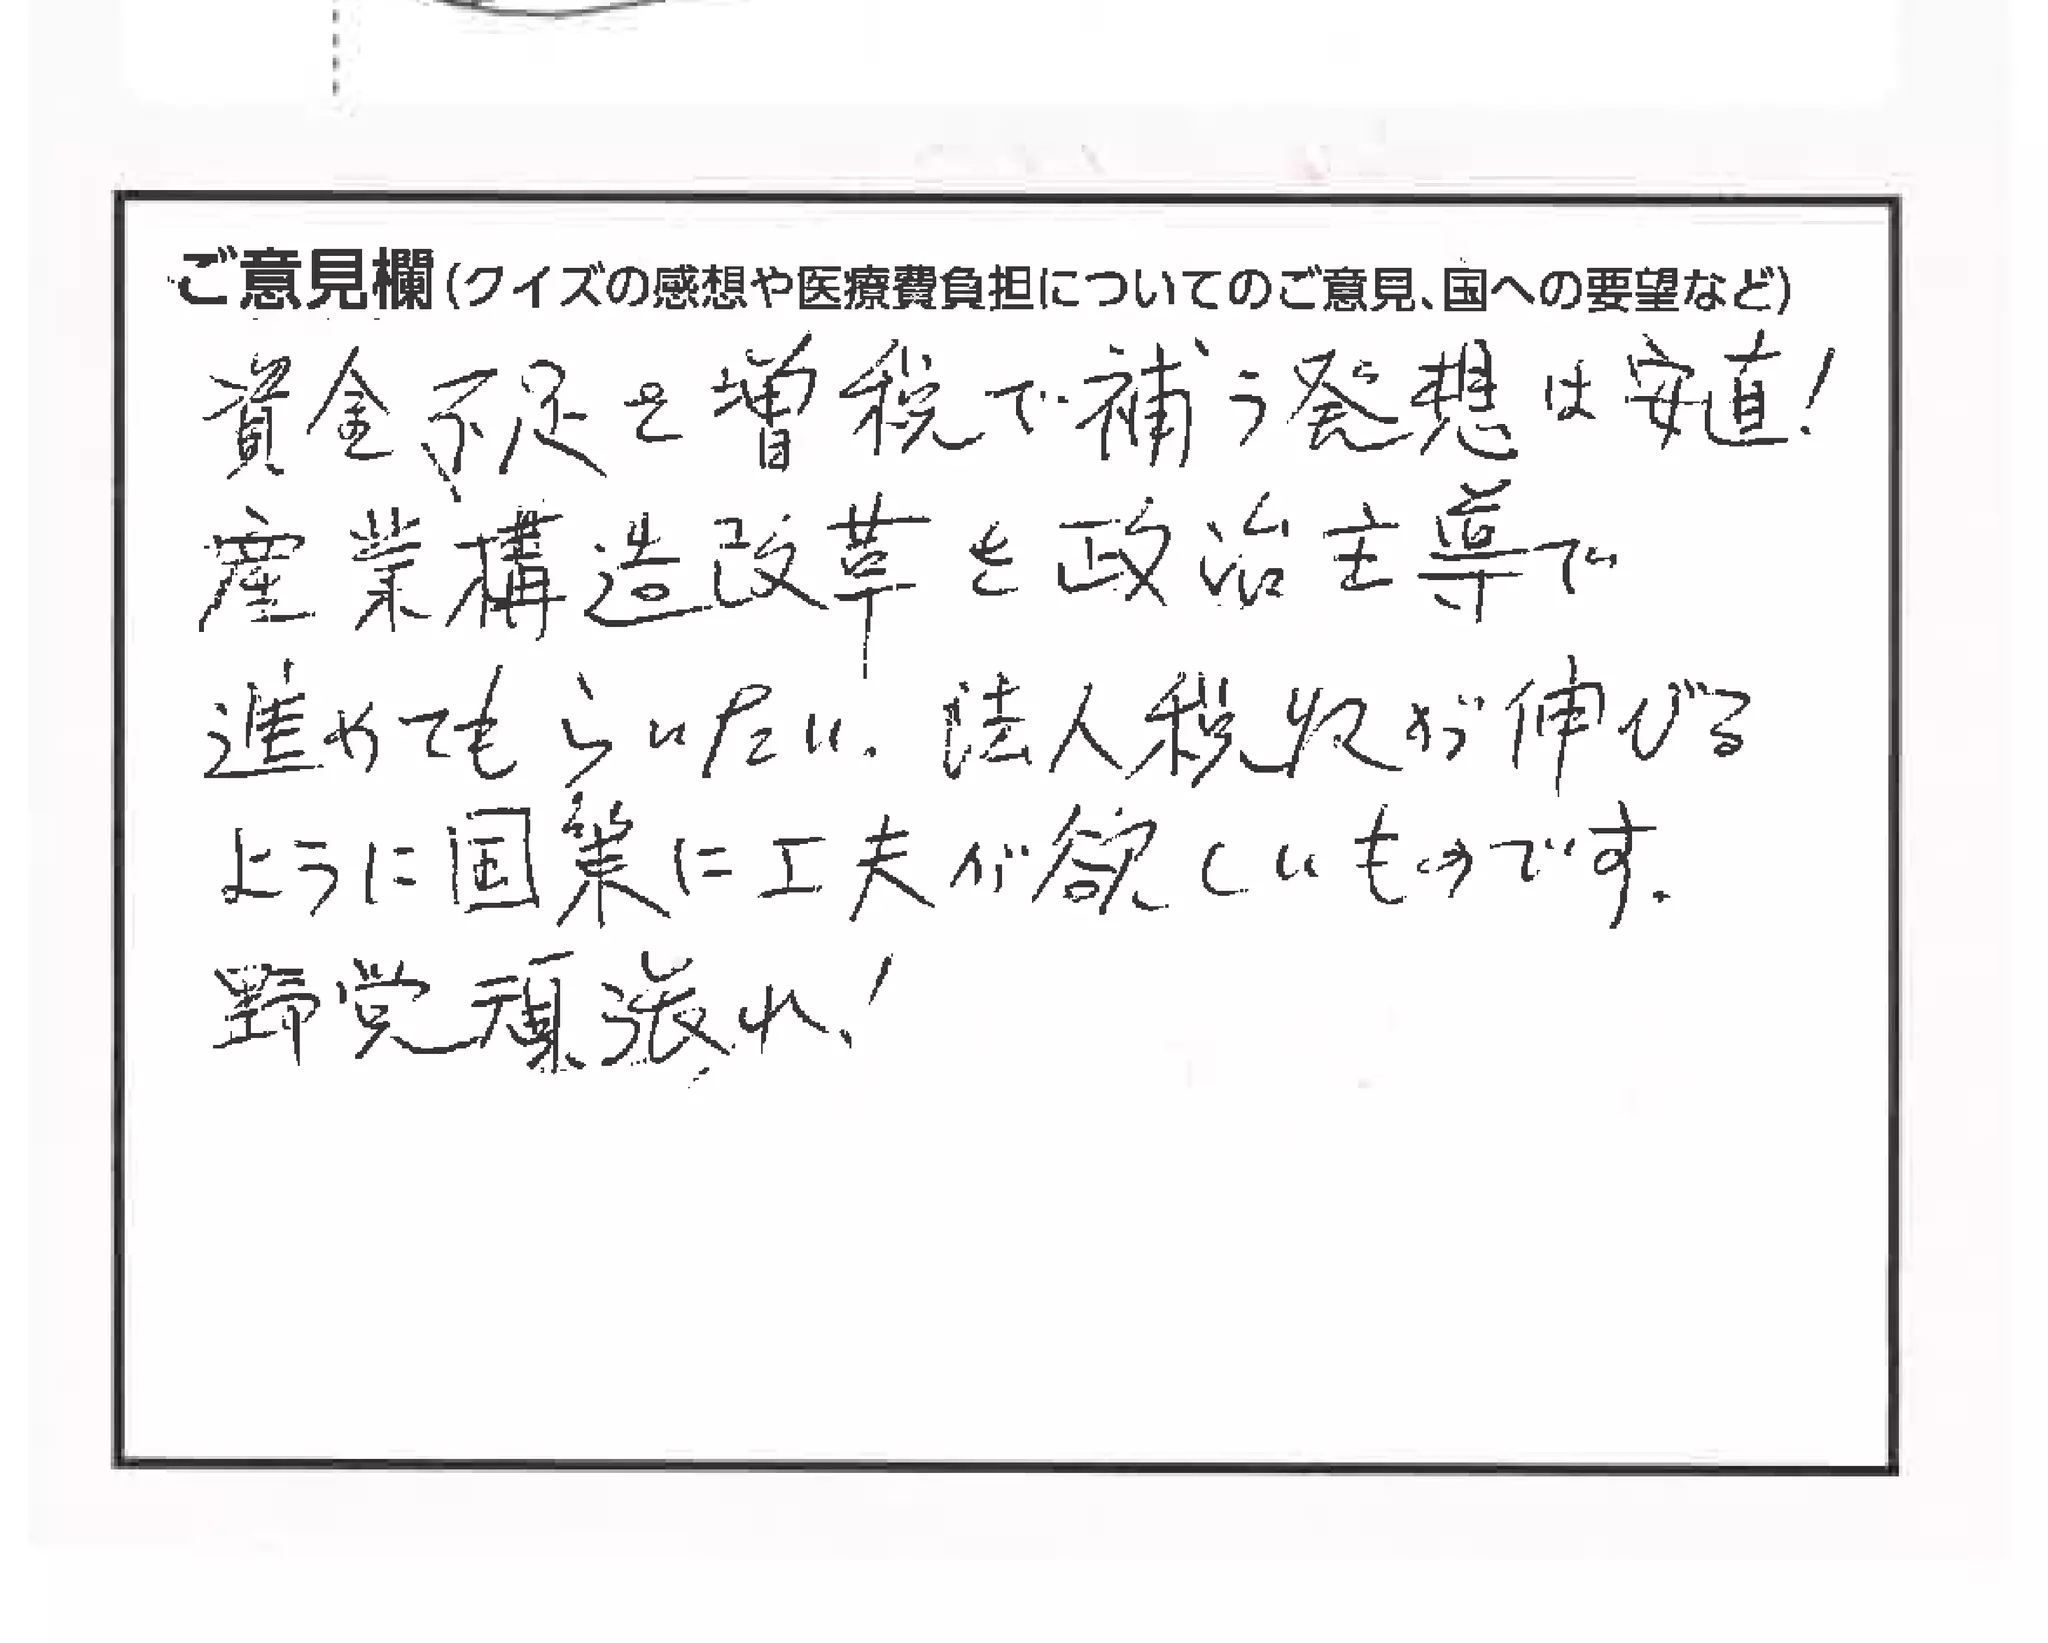 ご意見欄(クイズの感想や医療費負担についてのご意見、国への要望など)
資金不足を増税で補う発想は安直!
産業構造改革を政治主導で
進めてもらいたい.法人税収が伸びる
ように国策に工夫が欲しいものです.
野党頑張れ!